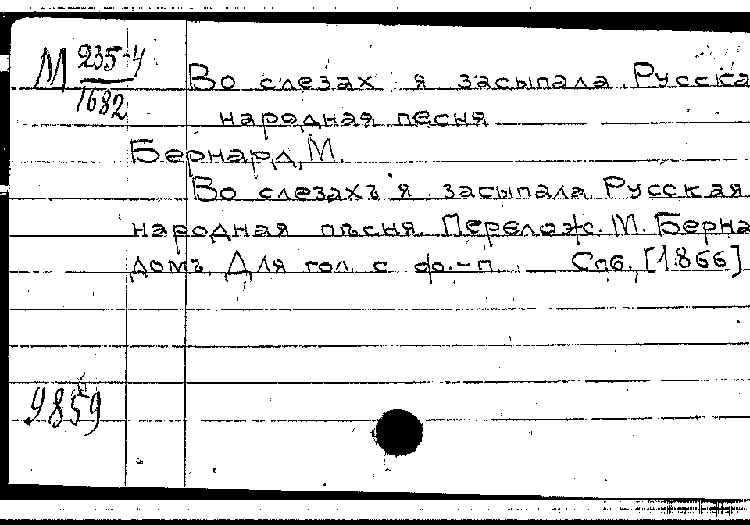 М 235-4
1682
Во слезах я засыпала Русска
народная песня
Бернард, М.
Во слезахъ я засыпала Русская
народная пѣсня. Перелож. М. Берна
домъ. Для гол. с фо.-п. Спб. [1866]
9859